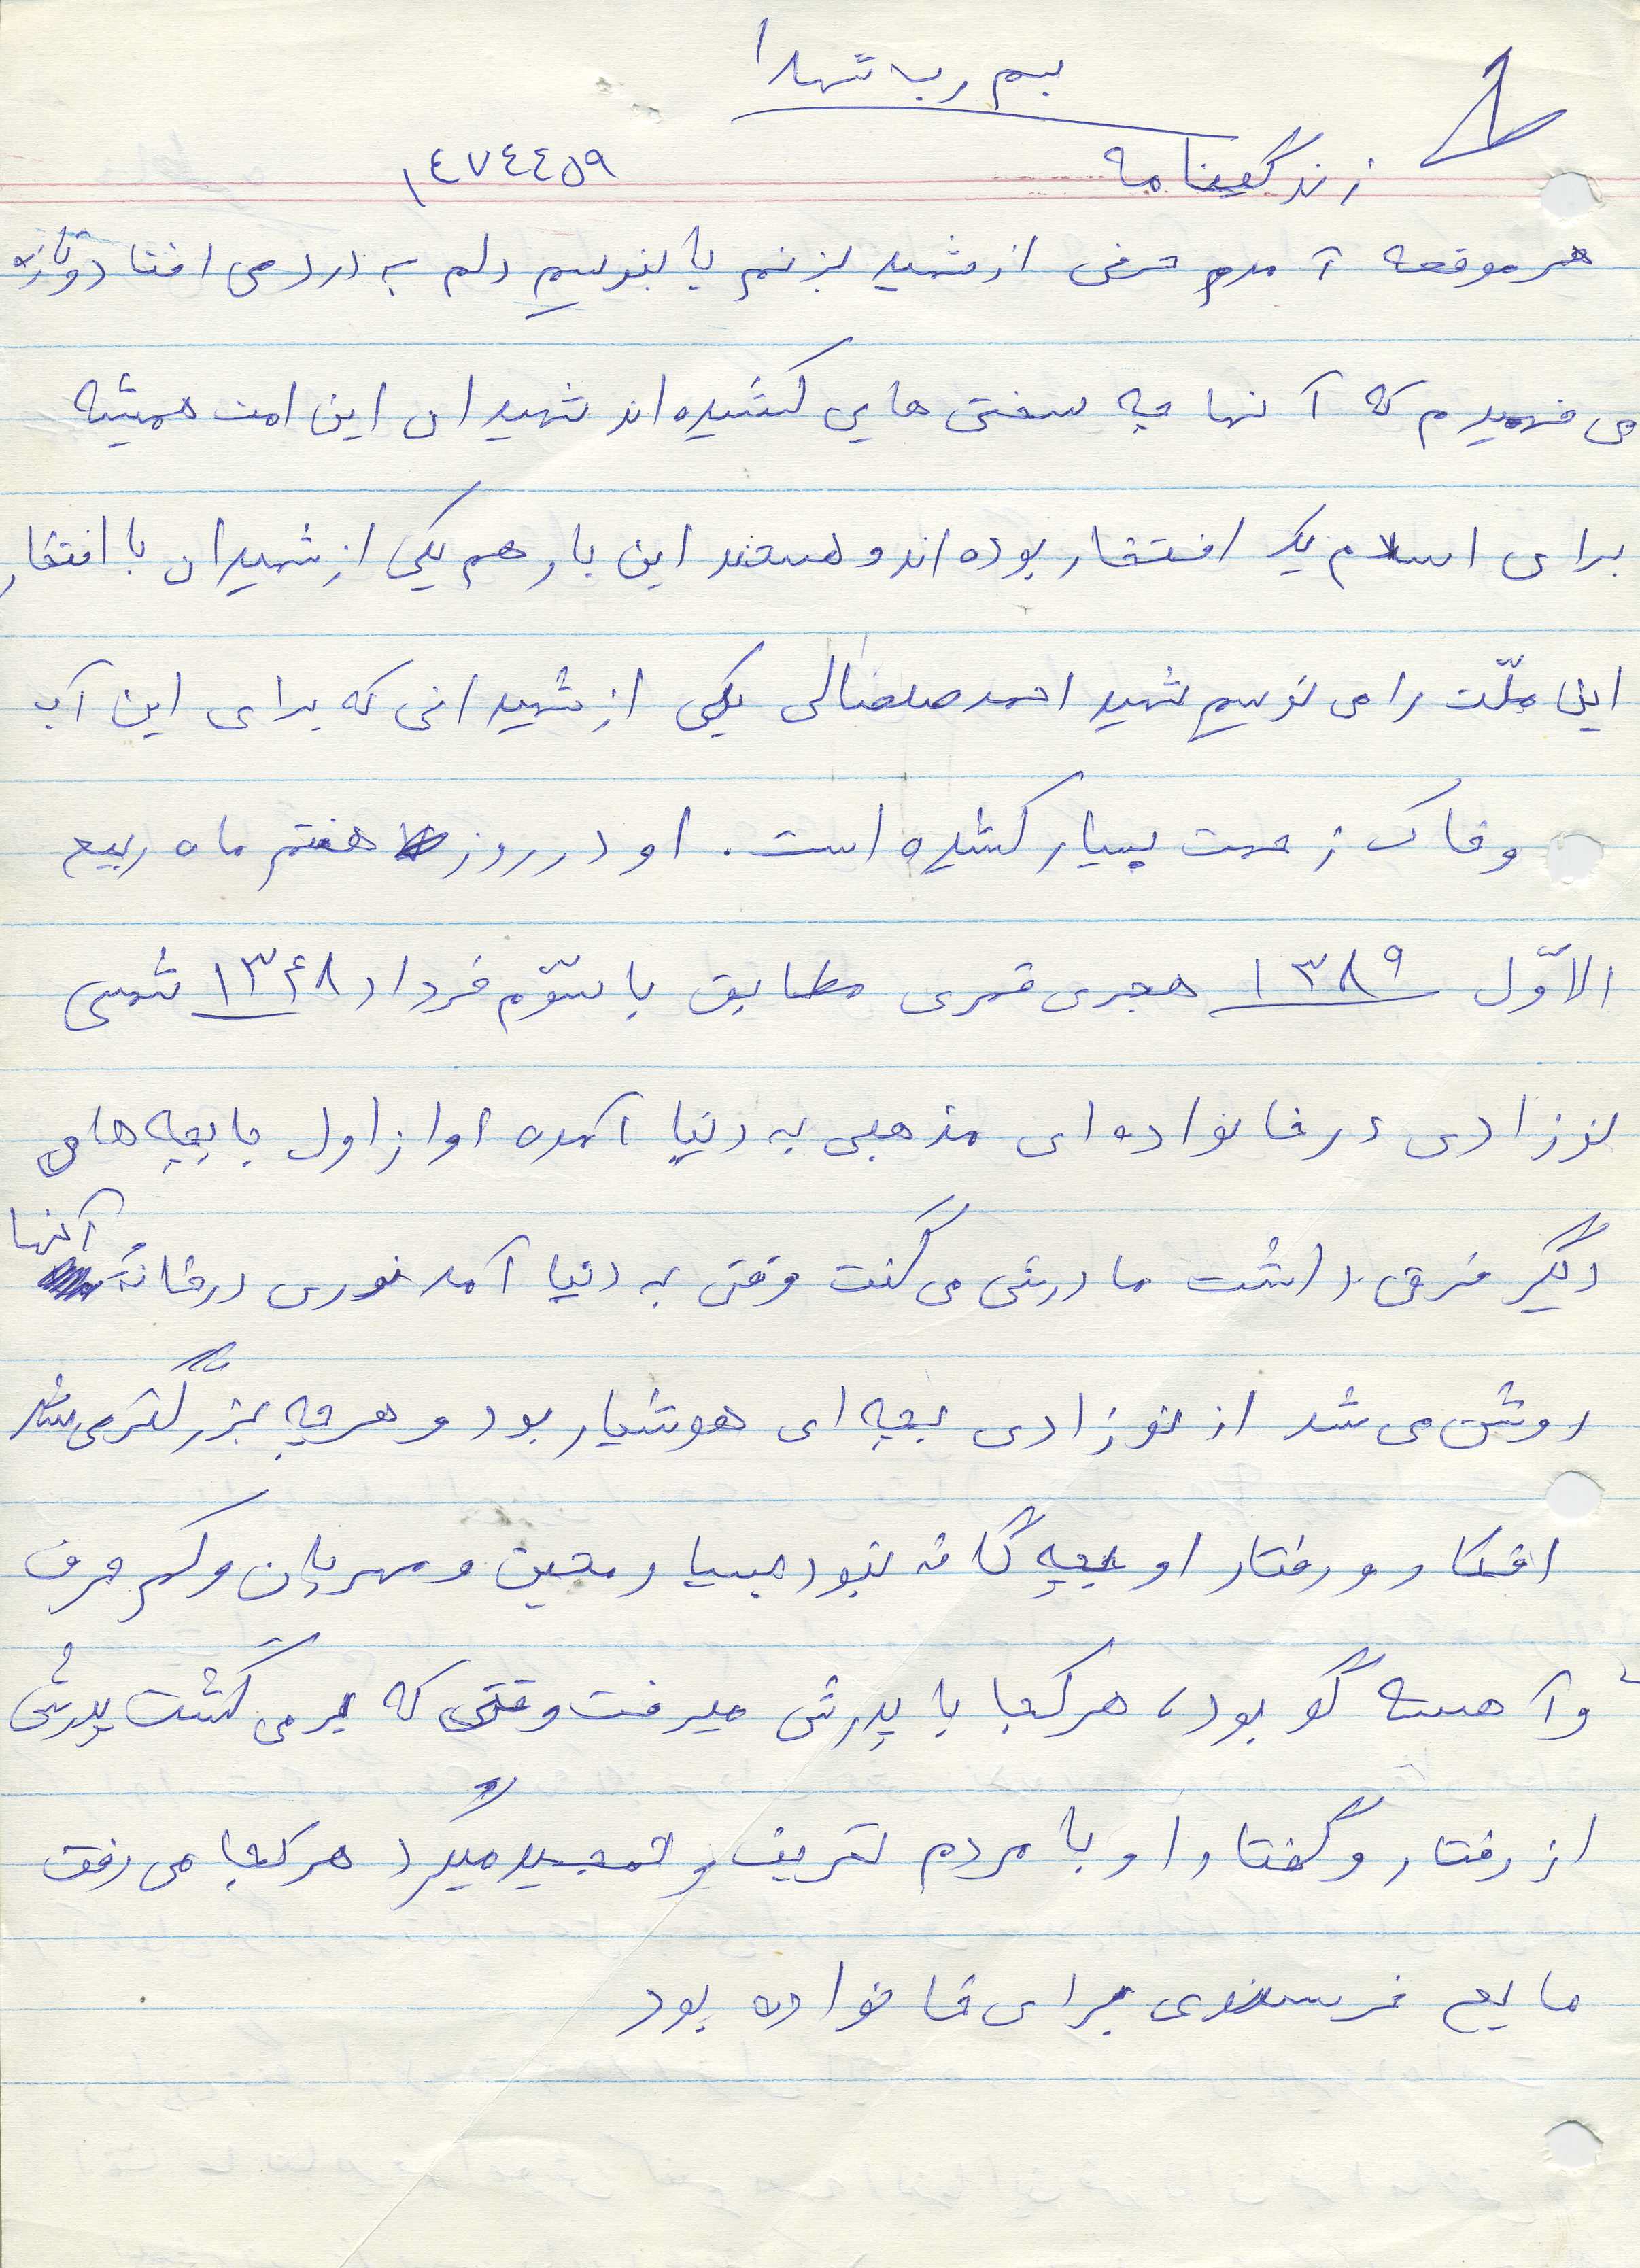 بسم رب شهدا
زندگینامه
۱۴۷۴۴۵۹
هر موقعه آمدم حرفی از شهید بزنم یا بنویسم دلم به درد می افتاد و تازه
می فهمیدم که آنها چه سختی هایی کشیده اند شهیدان این امت همیشه
برای اسلام یک افتخار بوده اند و هستند این بار هم یکی از شهیدان با افتخار
این ملّت را می نویسم شهید احمد صلصالی یکی از شهیدانی که برای این آب
و خاک زحمت بسیار کشیده است. او در روز هفتم ماه ربیع
الاوّل ۱۳۸۹ هجری قمری مطابق با سوّم خرداد ۱۳۴۸ شمسی
نوزادی در خانواده ای مذهبی به دنیا آمده او از اول با بچه های
دیگر فرق داشت مادرش می گفت وقتی به دنیا آمد نوری در خانهٔ آنها
روشن می شد از نوزادی بچه ای هوشیار بود و هر چه بزرگتر می شد
افکار و رفتار او بچه گانه نبود بسیار متین و مهربان و کم حرف
و آهسته گو بود، هر کجا با پدرش میرفت وقتی که بر می گشت پدرش
از رفتار و گفتار او با مردم تعریف و تمجید میکرد هر کجا می رفت
مایع خرسندی برای خانواده بود